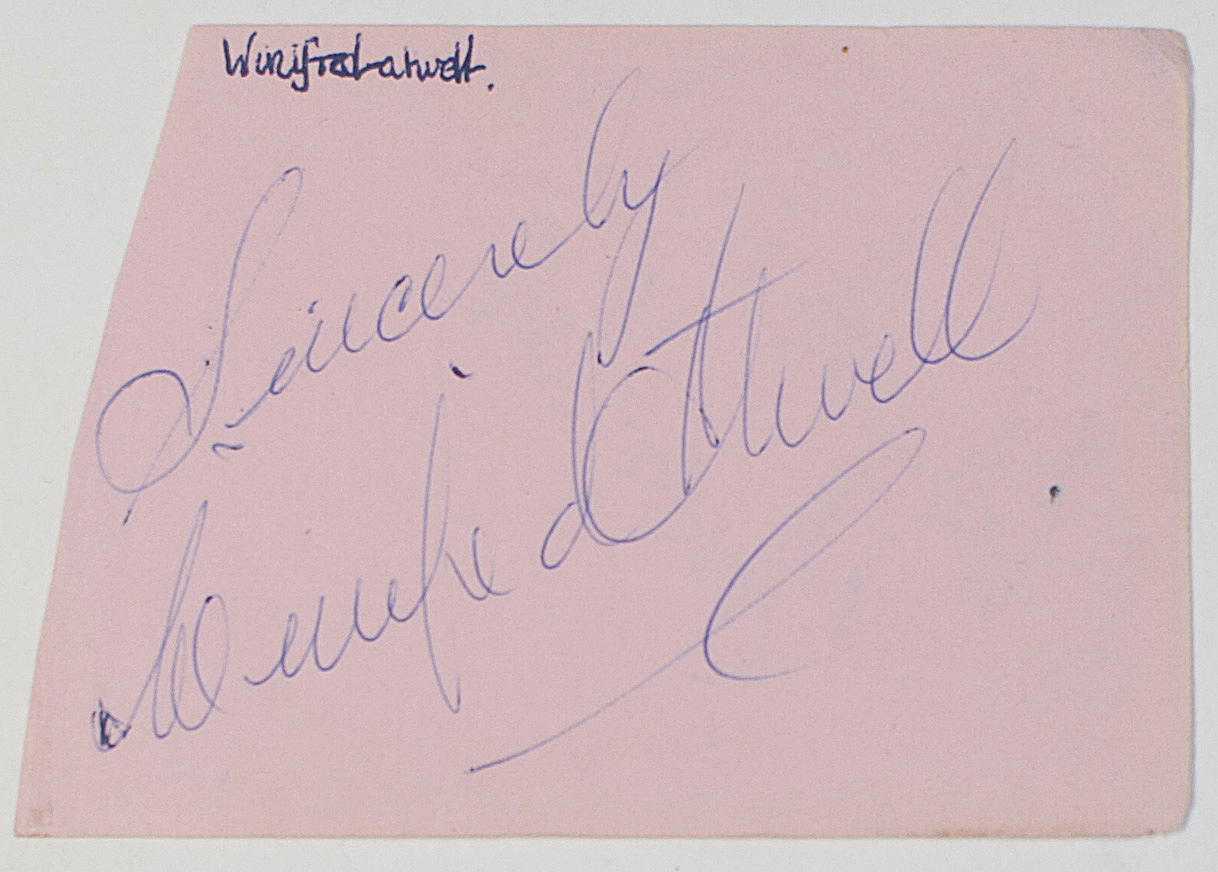 Winifred atwell.
Sincerely
Winifred Atwell